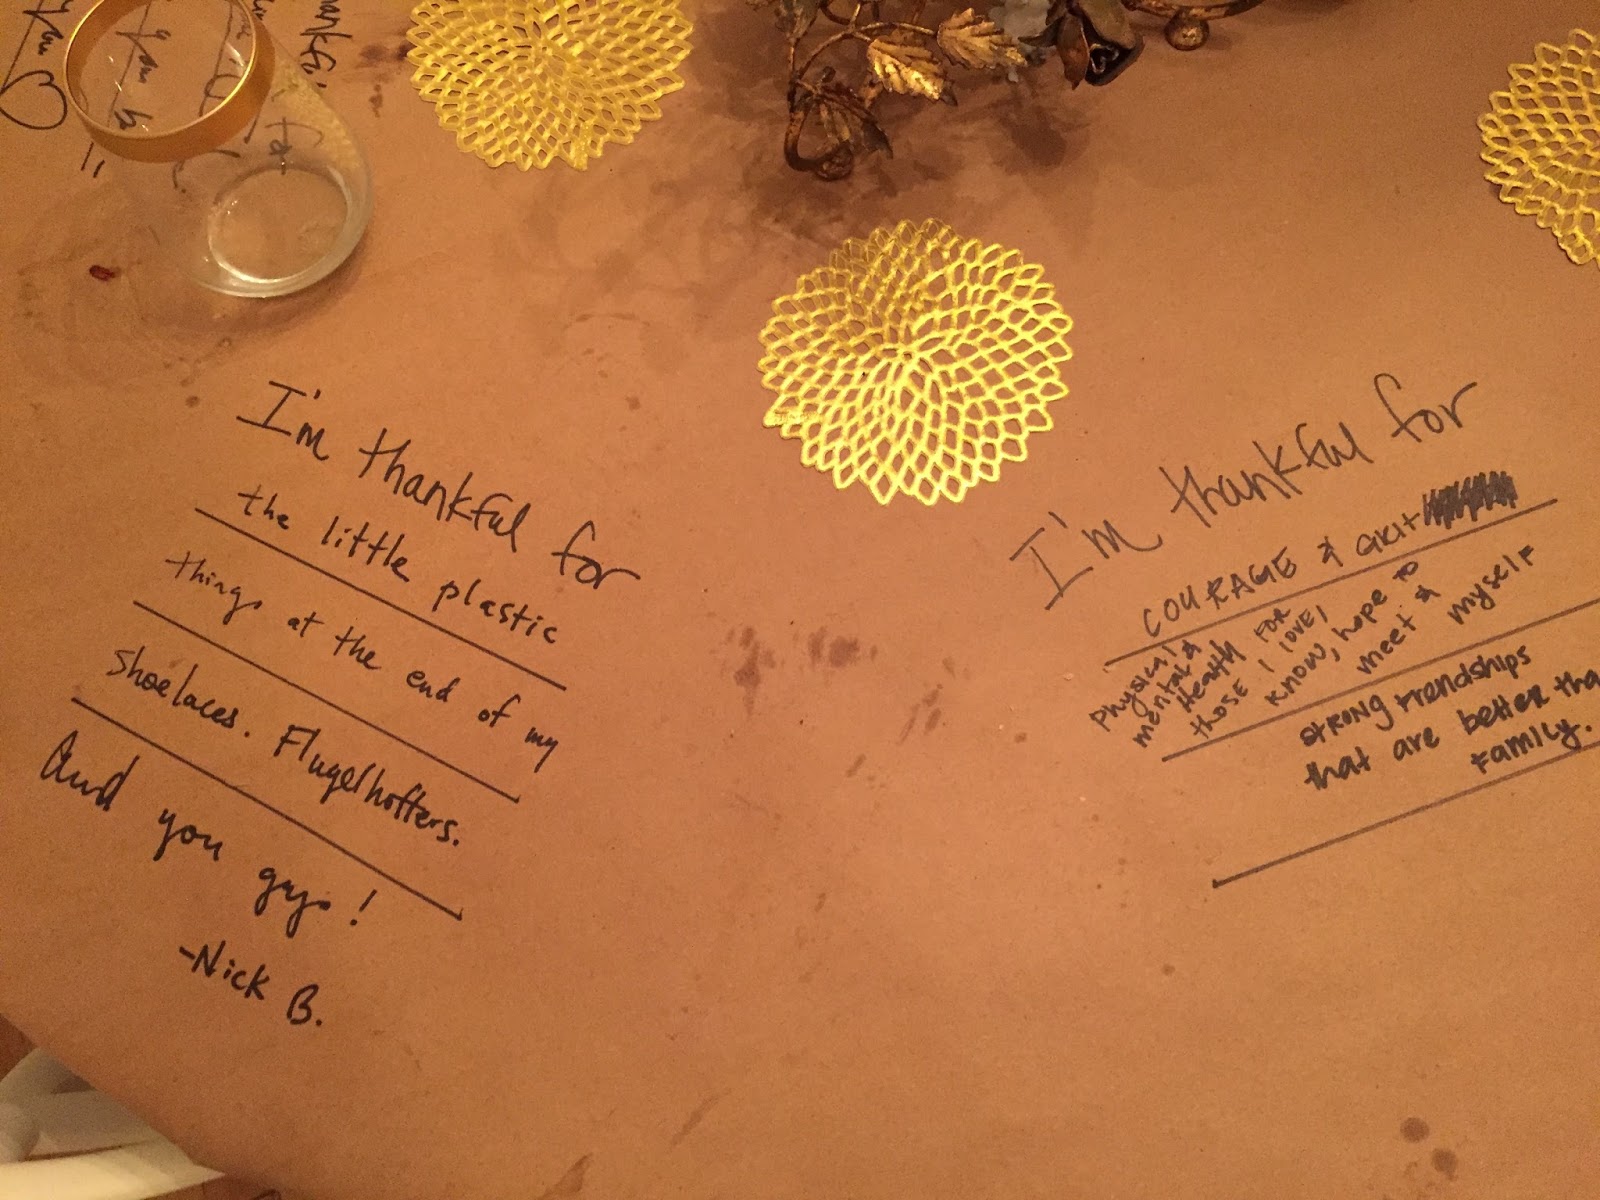 I'm thankful for
the little plastic
things at the end of my
shoelaces. Flugelhofters.
And you guys!
-Nick B.
I'm thankful for
COURAGE & GRIT
Physical
mental &
Health FOR
those I love,
know, hope to
meet & myself
strong friendships
that are better tha
family.
you